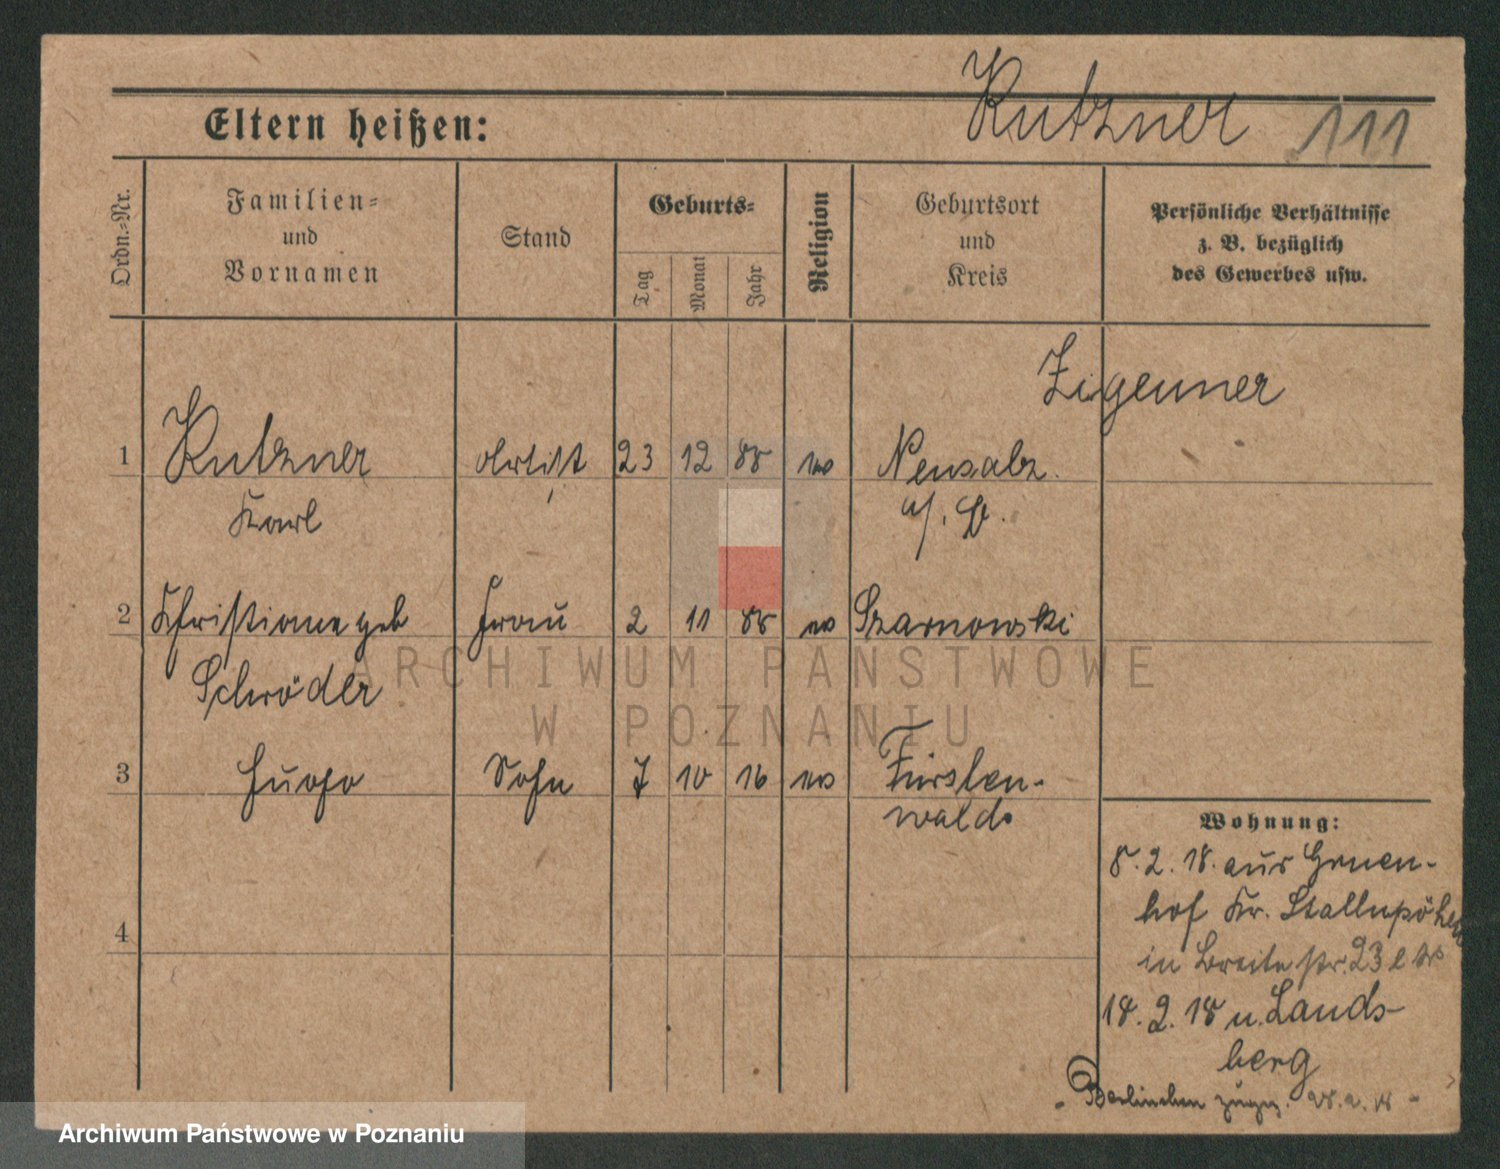 Kutzner 111
Eltern heißen:
Ordn.-Nr.
Familien-
und
Vornamen
Stand
Geburts-
Tag
Monat
Jahr
Religion
Geburtsort
und
Kreis
Persönliche Verhältnisse
z. B. bezüglich
des Gewerbes usw.
Zigeuner
1 Kutzner Artist 23 12 88 Neusalz
Karl a/. O.
2 Christiane geb Frau 2 11 88 Szarnowski
Schröder
3 Hugo Sohn 7 10 16 Fürsten-
walde
4
Wohnung:
8. 2. 18. aus Gruen-
hof Kr. Stallupöhen
in Breite str. 23
18. 2. 18 n. Lands-
berg
Berlinchen 28. 2. 18 -
ARCHIWUM PAŃSTWOWE
W POZNANIU
Archiwum Państwowe w Poznaniu